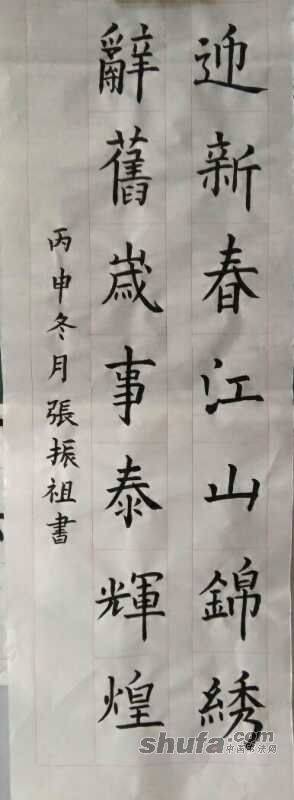 迎新春江山錦綉
辭舊歲事泰輝煌
丙申冬月張振祖書
shufa.com
中国书法网